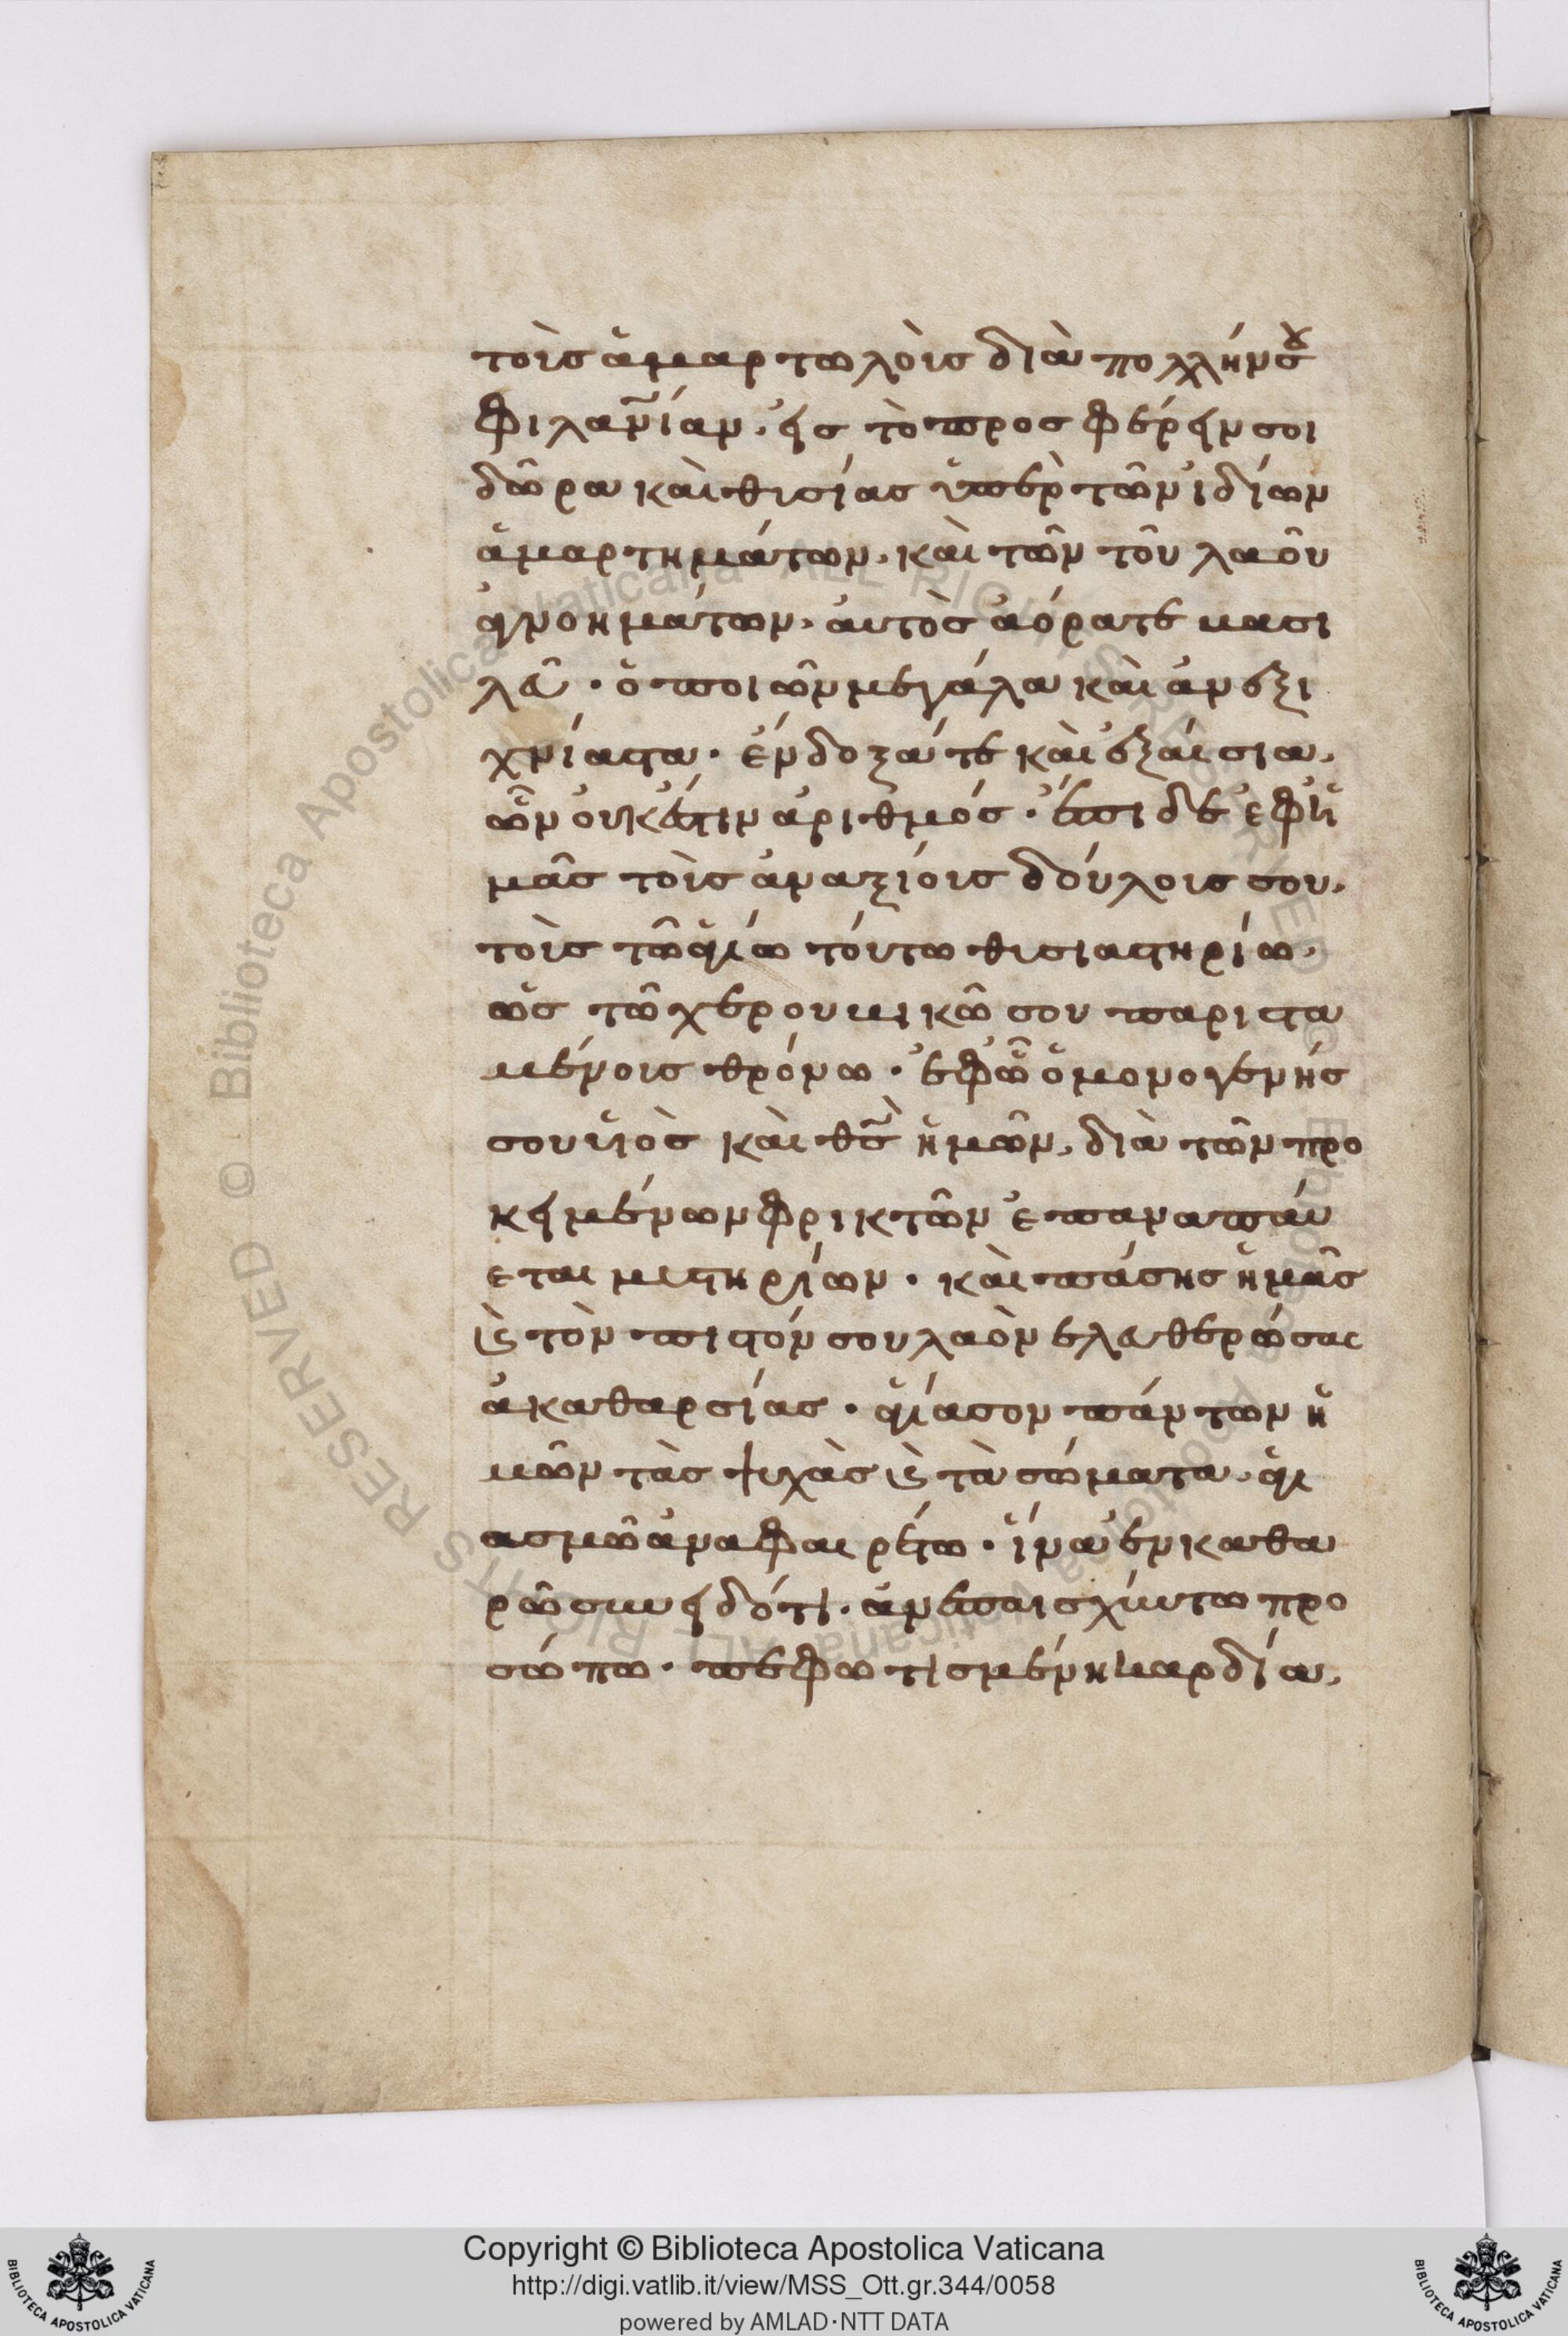 τοὶς ἁμαρτωλοὶς διὰ πολλήν σου
φιλανίαν· εἰς τὸ προσφέρειν σοι
δῶρα καὶ θισίας ὑπὲρ τῶν ἰδίων
ἁμαρτημάτων, καὶ τῶν τοῦ λαοῦ
ἀγνοημάτων, ἀυτὸς ἀόρατε βασι
λεῦ· ὁ ποιῶν μεγάλα καὶ ἀνεξι
χνίαστα· ἔνδοξάτε καὶ ἐξαίσια,
ὧν οὐκ ἔστιν ἀριθμός· ἔπιδε ἐφ ἡ
μᾶς τοὶς ἀναξίοις δούλοις σου,
τοὶς τῶ ἁγίω τούτω θισιαστηρίω,
ὡς τῶ χερουβικῶ σου παριστα
μένοις θρόνω· ἐφ ὧ ὁ μονογενής
σου ὑιὸς καὶ θς ἡμῶν, διὰ τῶν προ
κειμένων φρικτῶν ἐπαναπαύ
εται μιστηρίων· καὶ πάσης ἡμᾶς
κὲ τὸν πιστόν σου λαὸν ἐλευθερώσας
ἀκαθαρσίας· ἁγίασον πάντων ἡ
μῶν τὰς ψυχὰς κὲ τὰ σώματα, ἁγι
ασμῶ ἀναφαιρέτω· ἵνα ἐν καθα
ρῶ συνειδότι· ἀνεπαισχύντω προ
σώπω· πεφωτισμένη καρδία,
Copyright © Biblioteca Apostolica Vaticana
http://digi.vatlib.it/view/MSS_Ott.gr.344/0058
powered by AMLAD·NTT DATA